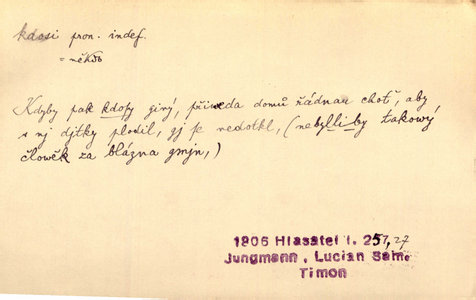 kdosi pron. indef.
= někdo
Kdyby pak kdosy giný, přiweda domů řádnau choť, aby
s nj djtky plodil, gj se nedotkl, (nebylliby takowý
člowěk za blázna gmjn,)
1806 Hlasatel I. 257,27
Jungmann, Lucian Sam.
Timon